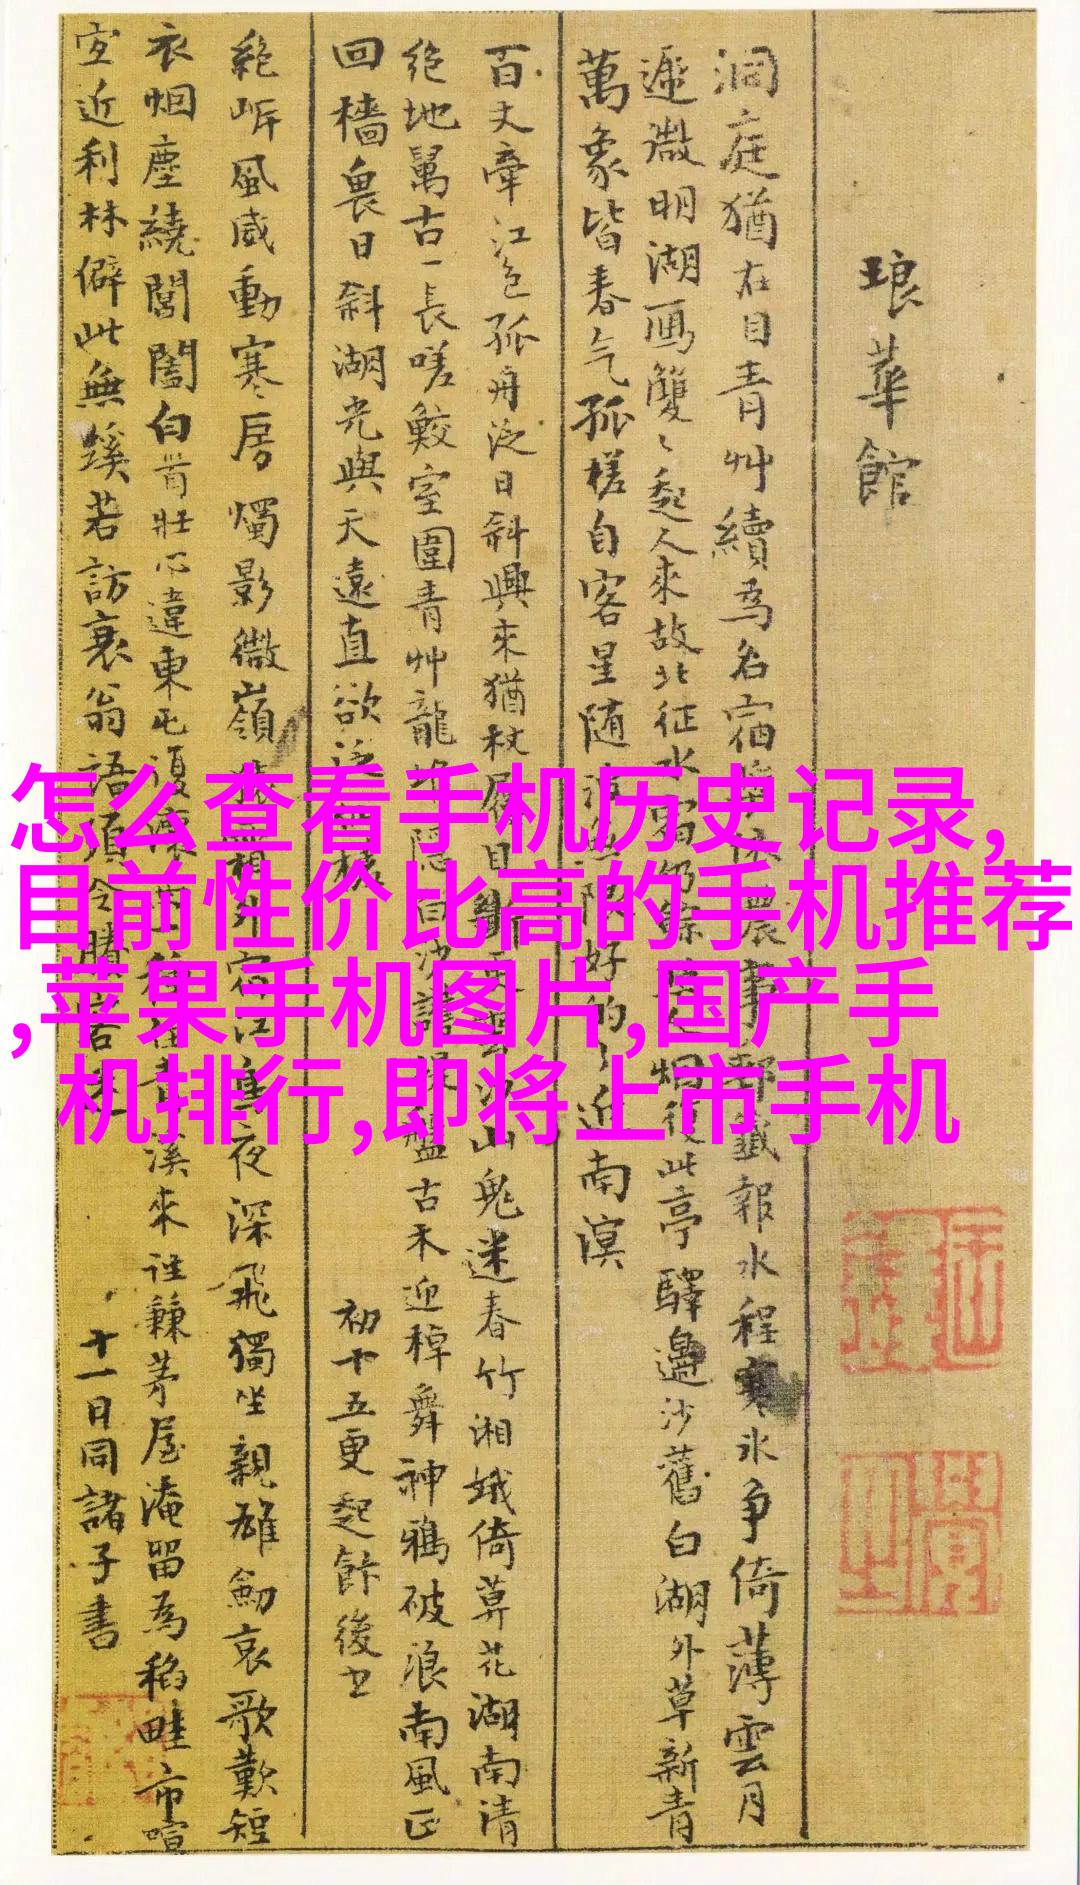 琅華館
洞庭猶在目青艸續為名宿
遞微明湖雁雙〻起人來故北征水
萬象皆春气孤槎自客星随
好的〻近南溟
烟後此亭驛邊沙舊白湖外草新青
報水程寒氷争倚薄雲月
百丈牽江色孤舟泛日斜興來猶杖屨目斷
山鬼迷春竹湘娥倚莫花湖南清
絶地萬古一長嗟鮫室圍青艸龍堆隠白沙
盤古木迎棹舞神鴉破浪南風正
回檣畏日斜湖光與天遠直欲泛
初十五更起餅後书
絶岸風威動寒房燭影微嶺猿
夜深飛獨坐親雄劍哀歌歎短
衣烟塵繞閶闔白首壯心違東屯復
溪來往兼茅屋淹留為稻畦市喧
宜近利林僻此無蹊若訪衰翁語須令賸
十一日同諸子書
怎么查看手机历史记录,
目前性价比高的手机推荐
,苹果手机图片,国产手
机排行,即将上市手机